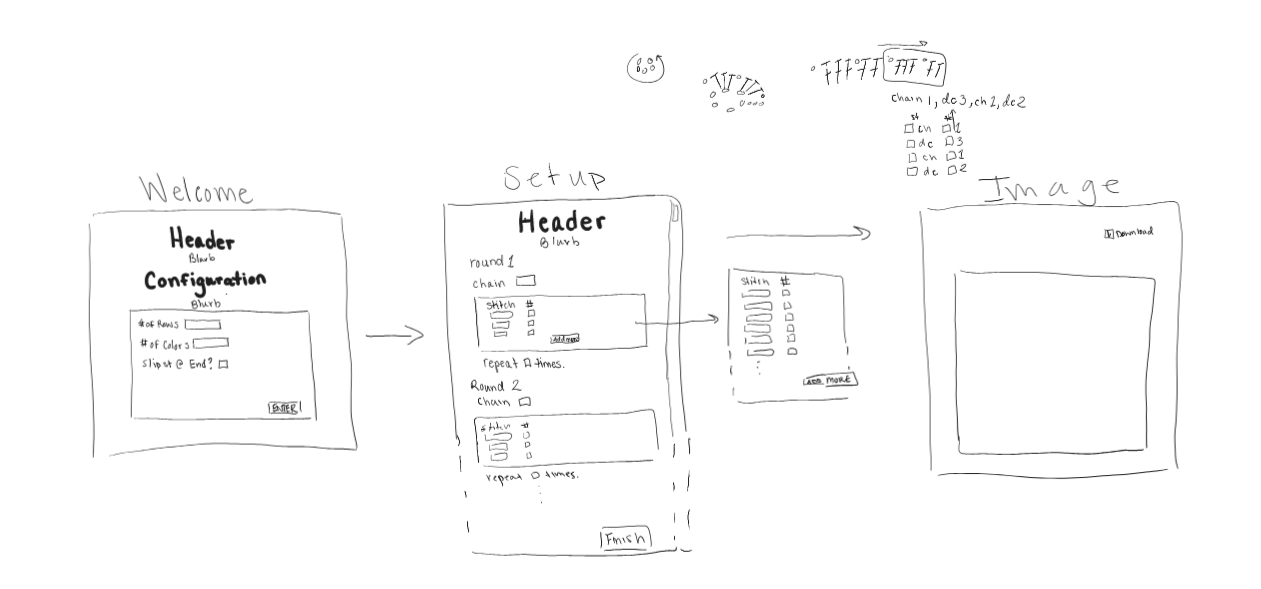 chain 1, dc3, ch1, dc2
st #
ch 1
dc 3
ch 1
dc 2
Welcome
Header
Blurb
Configuration
Blurb
# of Rows
# of Colors
Slip st @ End?
ENTER
Setup
Header
Blurb
round 1
chain
Stitch #
Add more
repeat times.
Round 2
Chain
Stitch #
repeat times.
Finish
Stitch #
ADD MORE
Image
Download